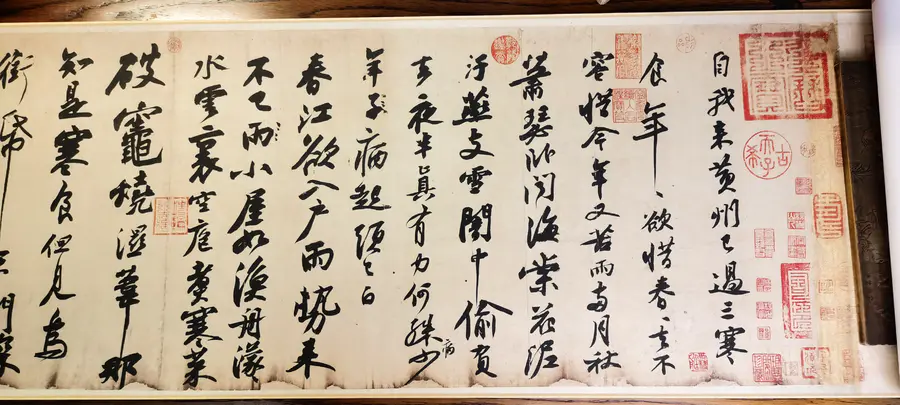 自我來黃州已過三寒
食年〻欲惜春〻去不
容惜今年又苦雨兩月秋
蕭瑟臥聞海棠花泥
汙燕支雪闇中偷負
去夜半真有力何殊少
病
年子病起頭已白
春江欲入戶雨勢來
不已雨小屋如漁舟濛〻
水雲裏空庖煮寒菜
破竈燒濕葦那
知是寒食但見烏
銜帋君門深
古希天子